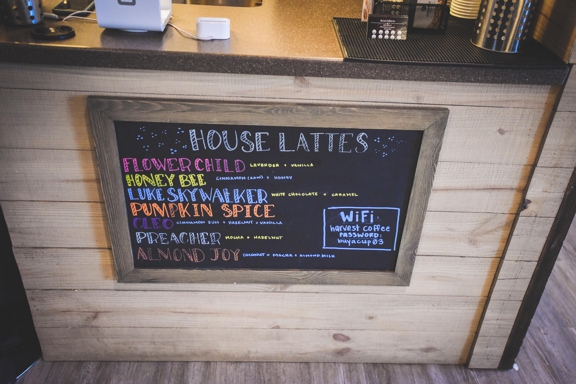 HOUSE LATTES
FLOWER CHILD LAVENDER + VANILLA
HONEY BEE CINNAMON + HONEY
LUKE SKYWALKER WHITE CHOCOLATE + CARAMEL
PUMPKIN SPICE
CLEO CINNAMON BUN + HAZELNUT + VANILLA
PREACHER MOCHA + HAZELNUT
ALMOND JOY COCONUT + MOCHA + ALMOND MILK
WiFi
harvest coffee
PASSWORD:
buyacup03